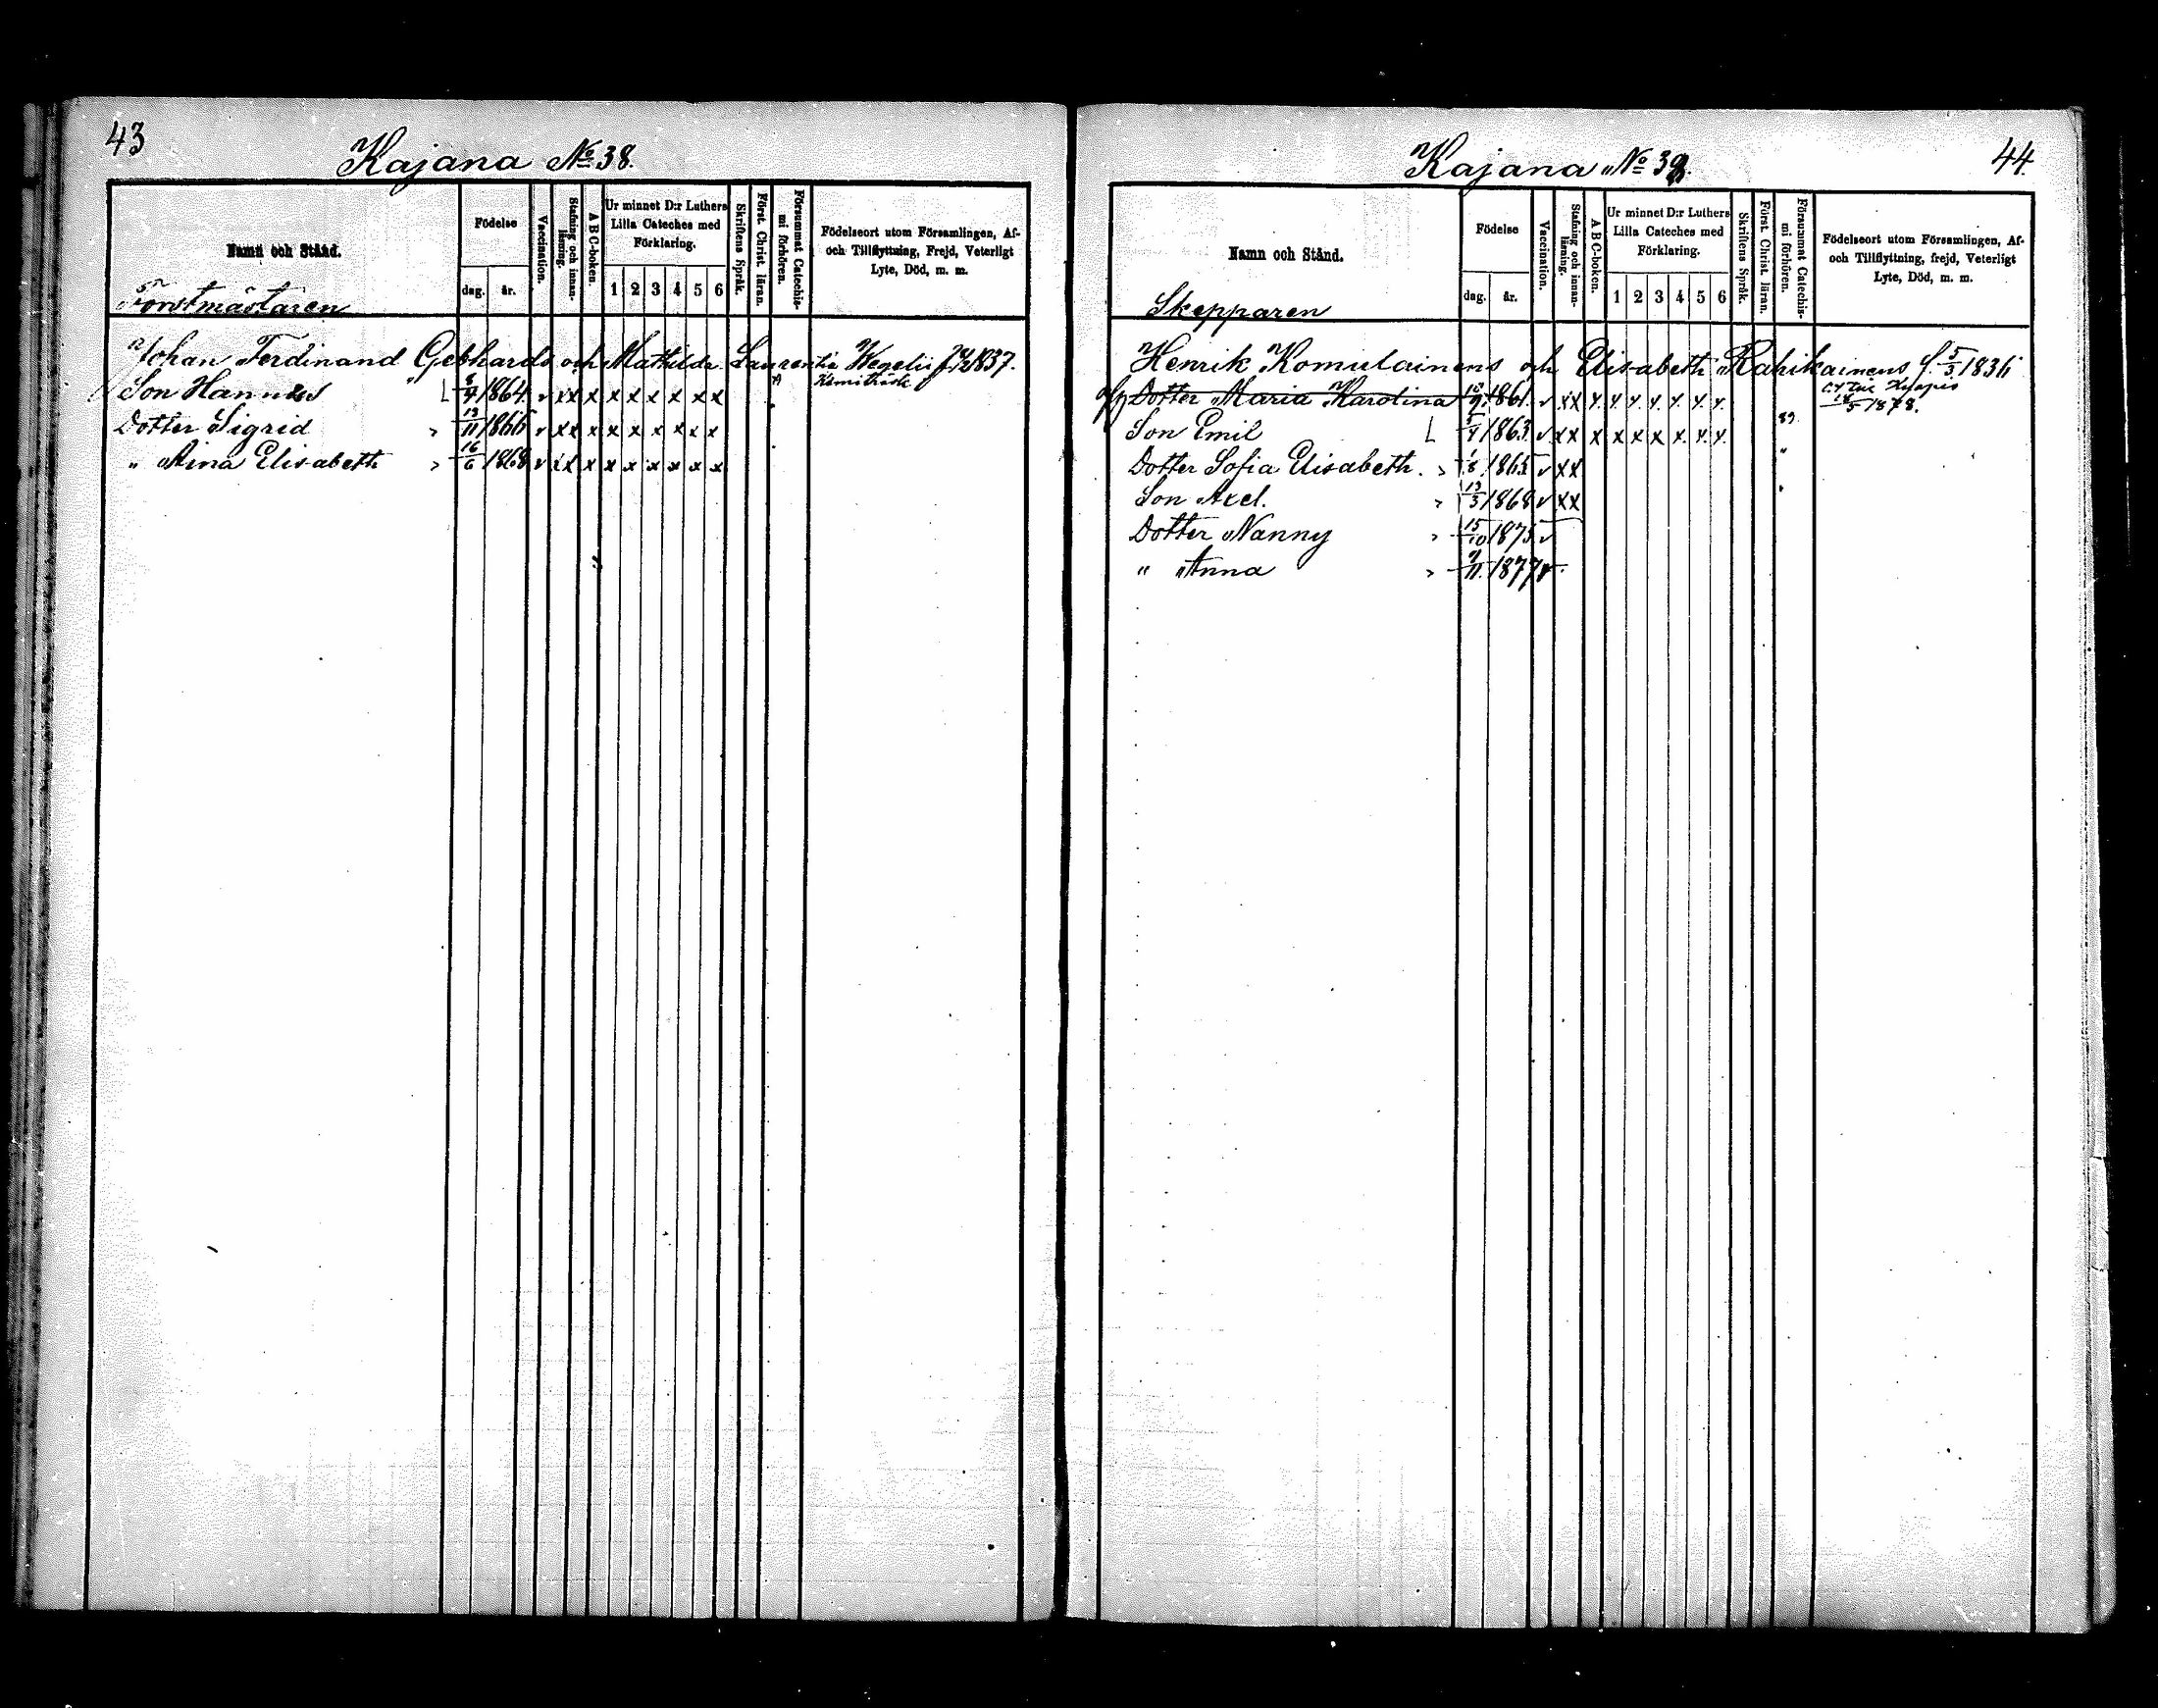 43
Kajana No 38.
Namn och Stånd.
Födelse
dag.
år.
Vaccination.
Stafning och innan-
läsning.
A B C-boken.
Ur minnet D:r Luthers
Lilla Cateches med
Förklaring.
1 2 3 4 5 6
Skriftens Språk.
Först. Christ. läran.
Försummat Catechis-
mi förhören.
Födelseort utom Församlingen, Af-
och Tillflyttning, Frejd, Veterligt
Lyte, Död, m. m.
Forstmästaren
Johan Ferdinand Gebhards och Mathilda Laurentia Wegelii f. 1837.
Son Hannes L 8/4 1864 v xx x x x x x x x
Dotter Sigrid " 13/11 1866 v xx x x x x x x x
" Aina Elisabeth " 16/6 1868 v xx x x x x x x x
Kajana No 39.
44.
Namn och Stånd.
Födelse
dag.
år.
Vaccination.
Stafning och innan-
läsning.
A B C-boken.
Ur minnet D:r Luthers
Lilla Cateches med
Förklaring.
1 2 3 4 5 6
Skriftens Språk.
Först. Christ. läran.
Försummat Catechis-
mi förhören.
Födelseort utom Församlingen, Af-
och Tillflyttning, frejd, Veterligt
Lyte, Död, m. m.
Skepparen
Henrik Komulainens och Elisabeth Rahikainens f. 5/3 1836
Dotter Maria Karolina 1861. v xx x. x. x. x. x. x. x. 1878.
Son Emil L 1863 v xx x x x x x. x. x.
Dotter Sofia Elisabeth. " 1865 v xx
Son Axel. " 13/3 1868 v xx
Dotter Nanny " 15/10 1875 v
" Anna " 1877 v